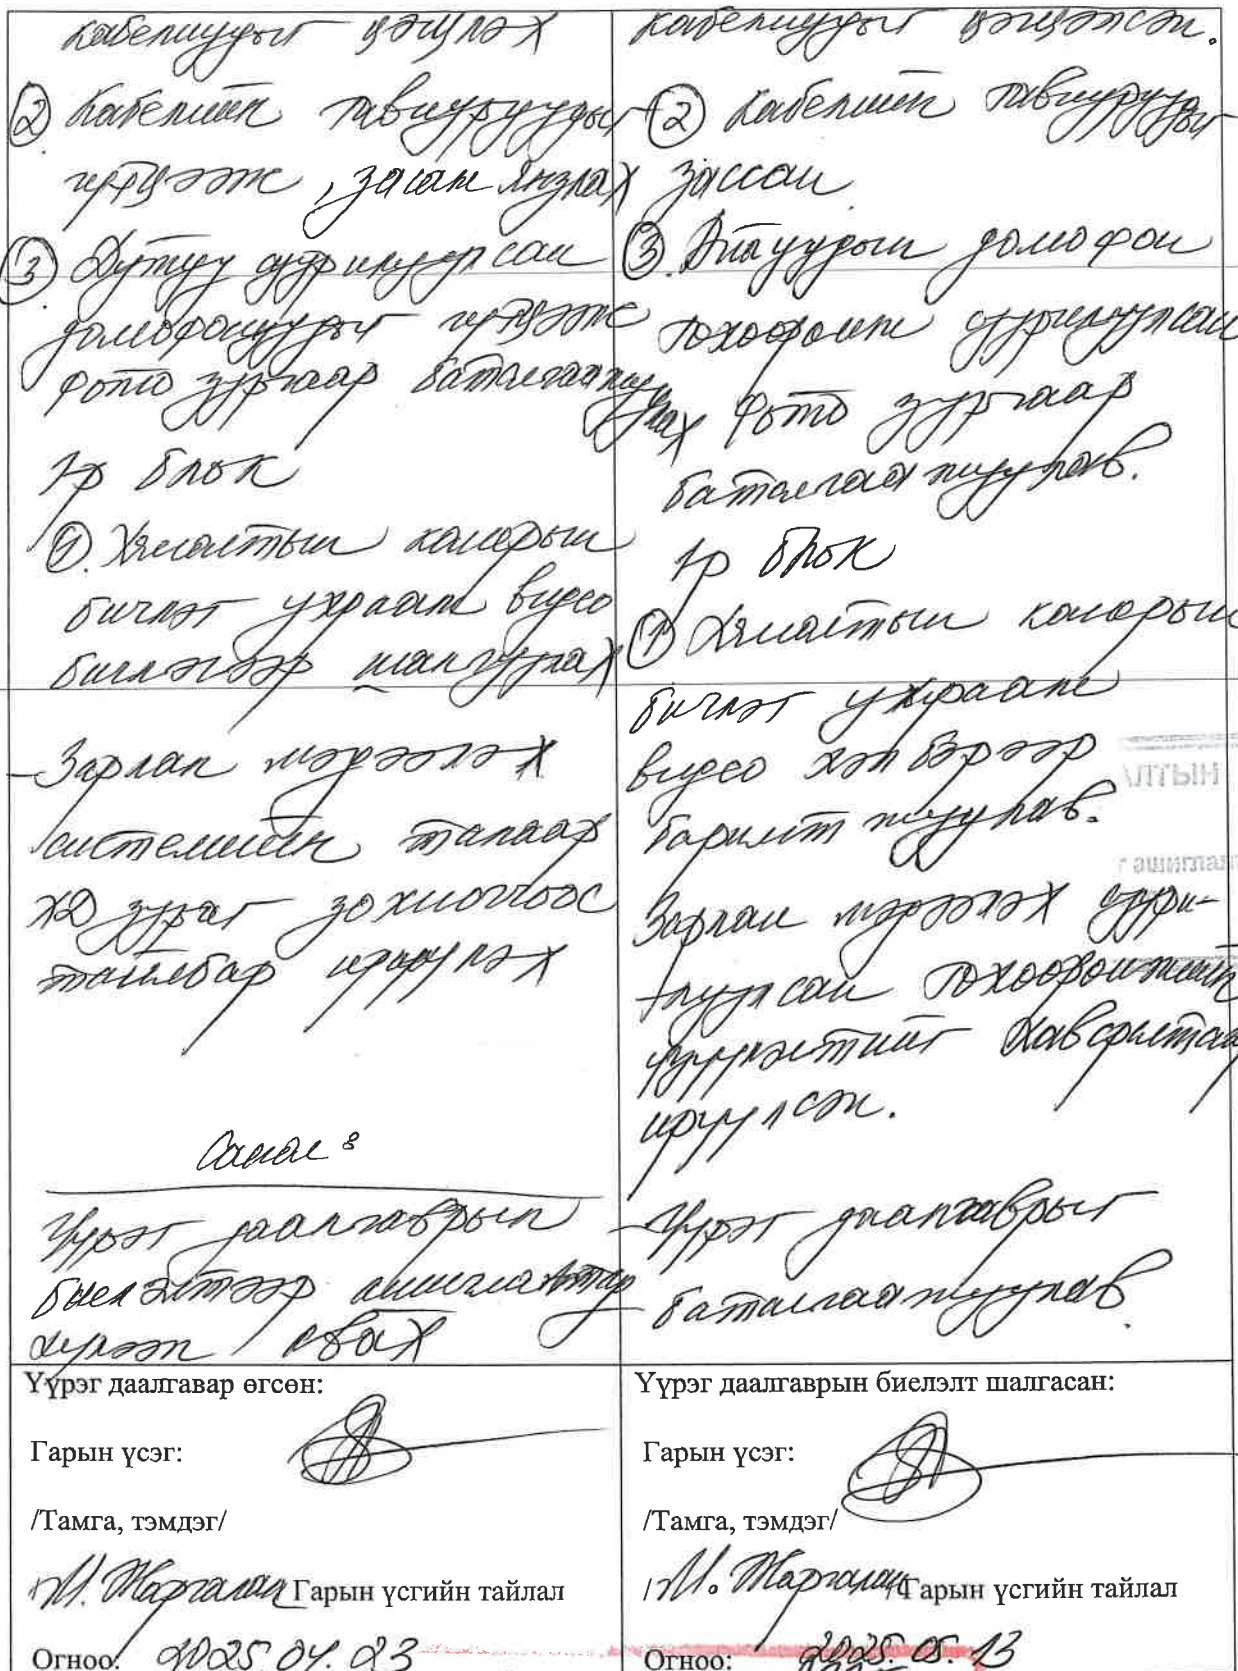 кабелиудыг цэгцлэх
② Кабелийн тавиуруудыг
гүйцээж, засан янзлах
③ Дутуу суурилуулсан
домофонуудыг гүйцээж
фото зургаар баталгаажуулах
1-р блок
①. Хяналтын камерын
бичлэг ухраан видео
бичлэгээр шалгуулах
- Зарлан мэдээлэх
системийн талаар
ХД зураг зохиогчоос
тайлбар ирүүлэх
Санал:
Үүрэг даалгаврын
биелэлтээр ашиглалтанд
хүлээн авах
кабелиудыг цэгцэлсэн.
② Кабелийн тавиуруудыг
зассан
③. Айлуудын домофон
төхөөрөмж суурилуулсан
фото зургаар
баталгаажуулав.
1-р блок
① Хяналтын камерын
бичлэг ухраан
видео хэлбэрээр
баримтжуулав.
Зарлан мэдээлэх суури-
луулсан төхөөрөмжийн
үзүүлэлтийг хавсралтаар
ирүүлсэн.
- Үүрэг даалгаврыг
баталгаажуулав.
АЛТЫН
ашиглалт
Үүрэг даалгавар өгсөн:
Гарын үсэг:
/Тамга, тэмдэг/
/М. Жаргалан/ Гарын үсгийн тайлал
Огноо: 2025.04.23
Үүрэг даалгаврын биелэлт шалгасан:
Гарын үсэг:
/Тамга, тэмдэг/
/М. Жаргалан/ Гарын үсгийн тайлал
Огноо: 2025.05.13